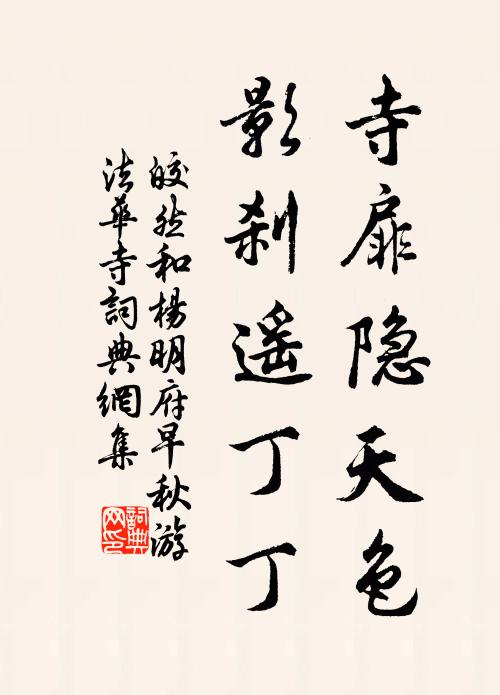 寺扉隐天色
影刹遥丁丁
皎然和楊明府早秋游
法華寺詞典網集
詞典
网印